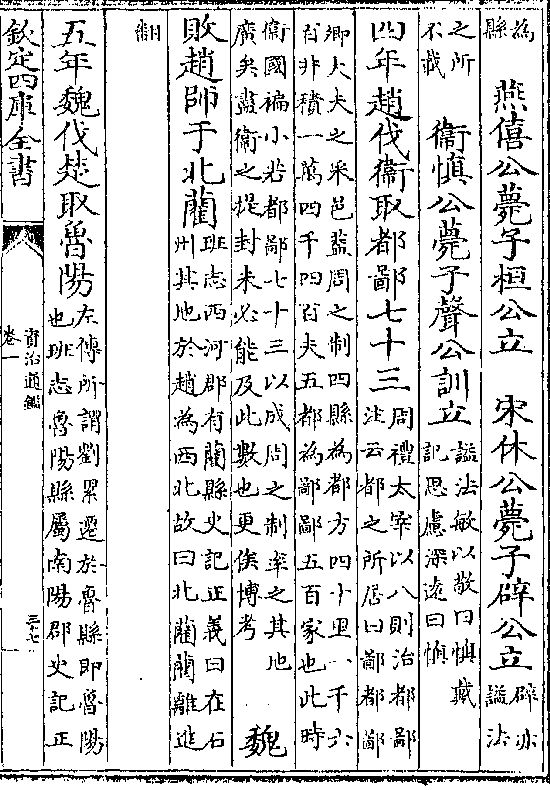 為
縣
燕僖公薨子桓公立　宋休公薨子辟公立
辟亦
諡法
之所
不載
衞慎公薨子聲公訓立
諡法敏以敬曰慎戴
記思慮深遠曰慎
四年趙伐衞取都鄙七十三
周禮太宰以八則治都鄙
注云都之所居曰鄙都鄙
卿大夫之采邑蓋周之制四縣為都方四十里一千六
百井積一萬四千四百夫五都為鄙鄙五百家也此時
衞國褊小若都鄙七十三以成周之制率之其地
廣矣盡衞之提封未必能及此數也更俟博考
魏
敗趙師于北藺
班志西河郡有藺縣史記正義曰在石
州其地於趙為西北故曰北藺藺離進
翻
五年魏伐楚取魯陽
左傳所謂劉累遷於魯縣即魯陽
也班志魯陽縣屬南陽郡史記正
欽定四庫全書
資治通鑑
卷一
三十七